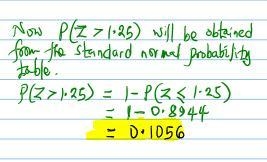 Now P(Z > 1.25) will be obtained
from the standard normal probability
table.
P(Z > 1.25) = 1 - P(Z ≤ 1.25)
= 1 - 0.8944
= 0.1056